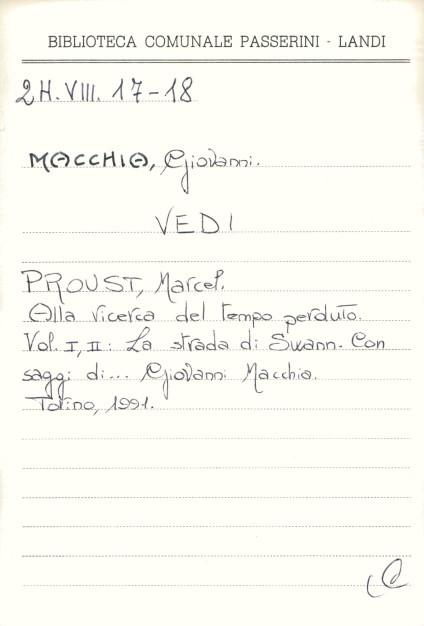 BIBLIOTECA COMUNALE PASSERINI - LANDI
2H.VIII. 17-18
MACCHIA, Giovanni.
VEDI
PROUST, Marcel.
Alla ricerca del tempo perduto.
Vol. I, II: La strada di Swann. Con
saggi di... Giovanni Macchia.
Torino, 1991.